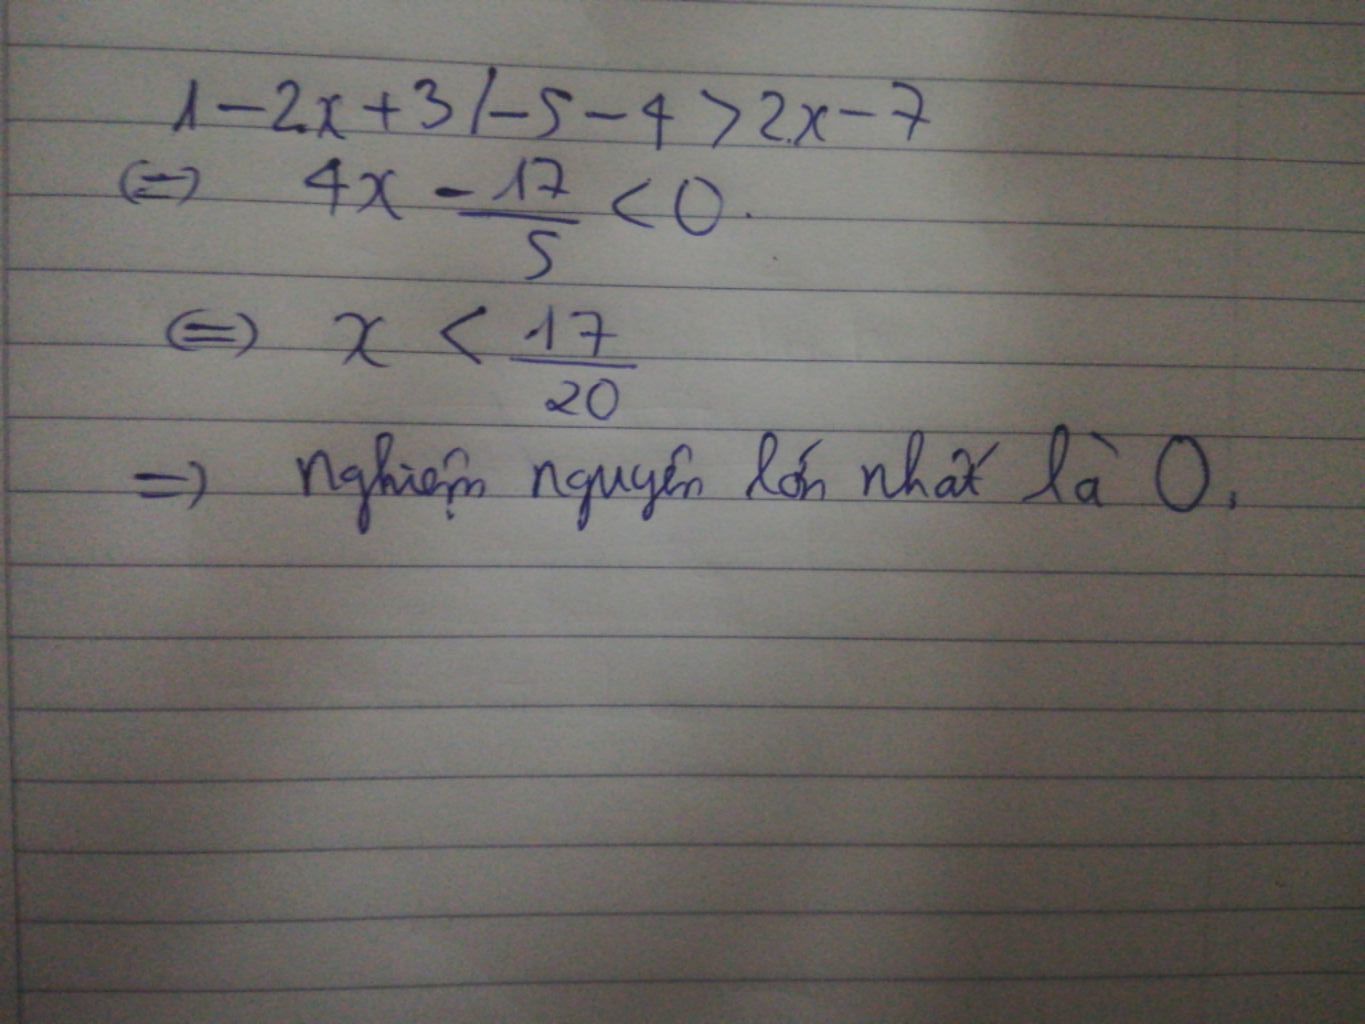 1-2x+3/-5-4>2x-7
(=) 4x - 17/5 < 0.
(=) x < 17/20
=) nghiệm nguyên lớn nhất là 0.